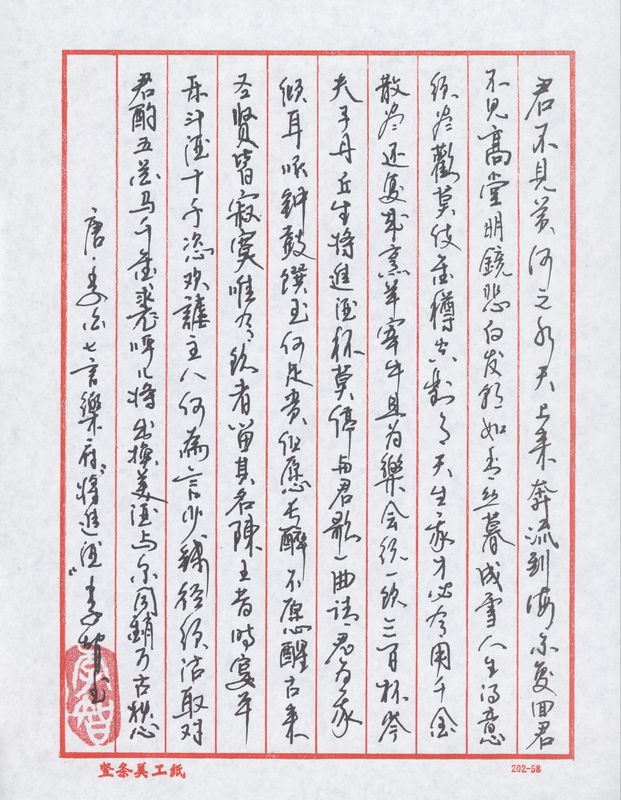 君不见黄河之水天上来奔流到海不复回君
不见高堂明镜悲白发朝如青丝暮成雪人生得意
须尽欢莫使金樽空对月天生我才必有用千金
散尽还复来烹羊宰牛且为乐会须一饮三百杯岑
夫子丹丘生将进酒杯莫停与君歌一曲请君为我
倾耳听钟鼓馔玉何足贵但愿长醉不愿醒古来
圣贤皆寂寞唯有饮者留其名陈王昔时宴平
乐斗酒十千恣欢谑主人何为言少钱径须沽取对
君酌五花马千金裘呼儿将出换美酒与尔同销万古愁
唐·李白七言樂府“将進酒”李智书
李智
竖条美工纸
202-58